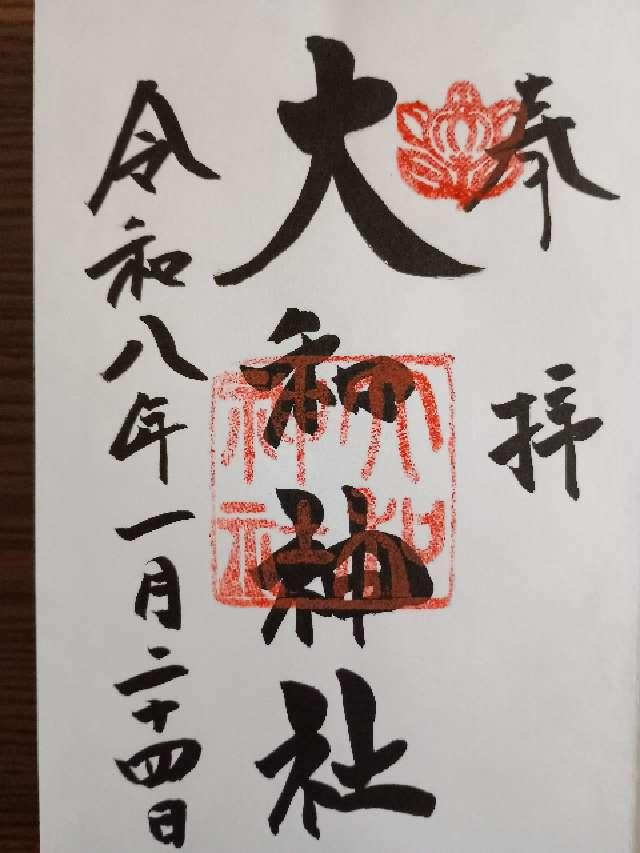 奉拝
大和神社
大和
神社
令和八年一月二十四日